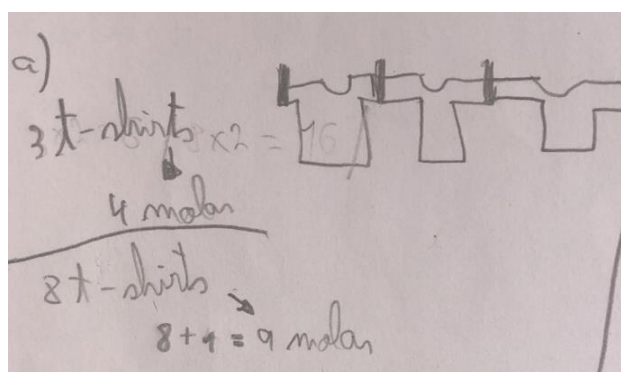 a)
3 t-shirts x2 = 16
4 molas
8 t-shirts
8+1 = 9 molas